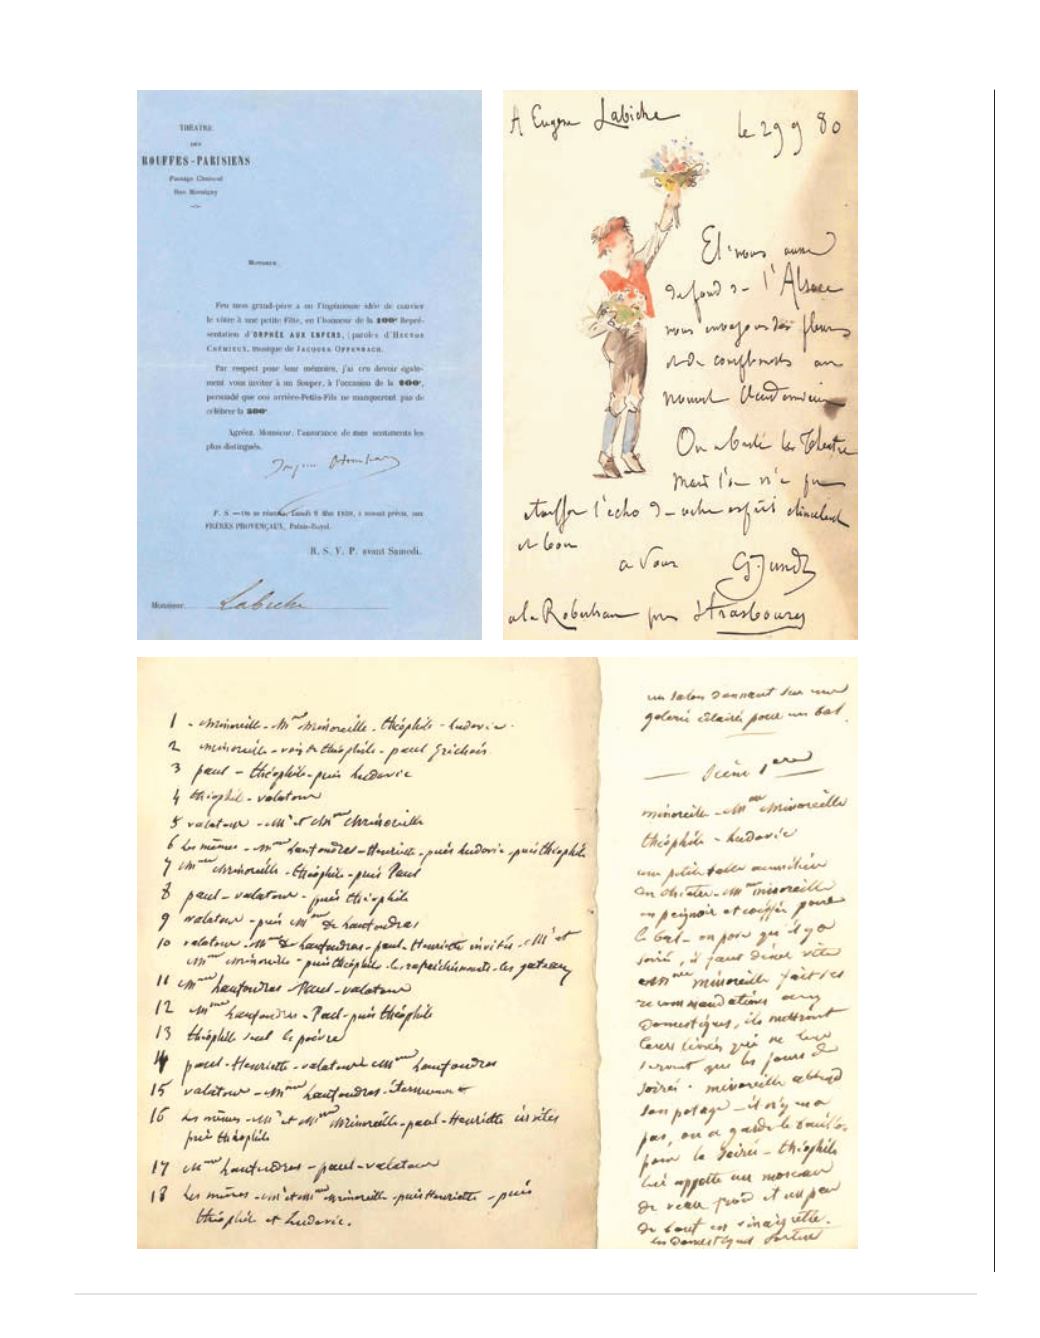 THÉATRE
DES
BOUFFES-PARISIENS
Passage Choiseul
Rue Monsigny
Monsieur,
Feu mon grand-père a eu l'ingénieuse idée de convier
le vôtre à une petite Fête, en l'honneur de la 100e Repré-
sentation d'ORPHÉE AUX ENFERS, (paroles d'HECTOR
CRÉMIEUX, musique de JACQUES OFFENBACH.
Par respect pour leur mémoire, j'ai cru devoir égale-
ment vous inviter à un Souper, à l'occasion de la
persuadé que nos arrière-Petits-Fils ne manqueront pas de
célébrer la
Agréez, Monsieur, l'assurance de mes sentiments les
plus distingués.
P. S. — On se réunira, Lundi 9 Mai 1859, à minuit précis, aux
FRÈRES PROVENÇAUX, Palais-Royal.
R. S. V. P. avant Samedi.
Monsieur Labiche
A Eugene Labiche
le 29 9 80
Et nous aussi
du fond de l'Alsace
nous envoyons des fleurs
et de compliments au
nouvel
On a brulé les Théatre
mais l'on n'a pu
étouffer l'écho de votre esprit étincelant
et bon
a vous
G. Jundt
a la Robertsau près Strasbourg
1 - Minoreille - Mme Minoreille - théophile - Ludovic.
2 minoreille - voix de théophile - paul
3 paul - théophile - puis Ludovic
4 théophile - valatour
5 valatour - Mr et Mme Minoreille
6 Les mêmes - Mme hautoudras - Henriette - puis Ludovic - puis théophile
7 Mme Minoreille - théophile - puis Paul
8 paul - valatour - puis théophile
9 valatour - puis Mme de hautoudras
10 valatour - Mme de hautoudras - paul - Henriette invités - Mr et
Mme Minoreille - puis théophile - les rafraichissements - les gateaux
11 Mme hautoudras - Paul - valatour
12 Mme hautoudras - Paul - puis théophile
13 théophile seul le poivre
14 paul - Henriette - valatour Mme hautoudras
15 valatour - Mme hautoudras - éternument
16 Les mêmes - Mr et Mme Minoreille - paul - Henriette invités
puis théophile
17 Mme hautoudras - paul - valatour
18 Les mêmes - Mr et Mme Minoreille - puis Henriette - puis
théophile et Ludovic.
un salon donnant sur une
galerie éclairée pour un bal.
Scène 1ère
minoreille - Mme Minoreille
théophile - Ludovic
une petite table
Mme minoreille
en peignoir et coiffée pour
le bal - on pose qu'il y a
soirée, il faut diner vite
Mme minoreille fait ses
recommandations aux
domestiques, ils mettront
leurs livrées qui ne leur
servent que les jours de
soirée. minoreille attend
son potage - il n'y en a
pas, on a gardé le bouillon
pour la soirée - théophile
lui apporte un morceau
de veau froid et un peu
de bœuf en vinaigrette.
les domestiques sortent